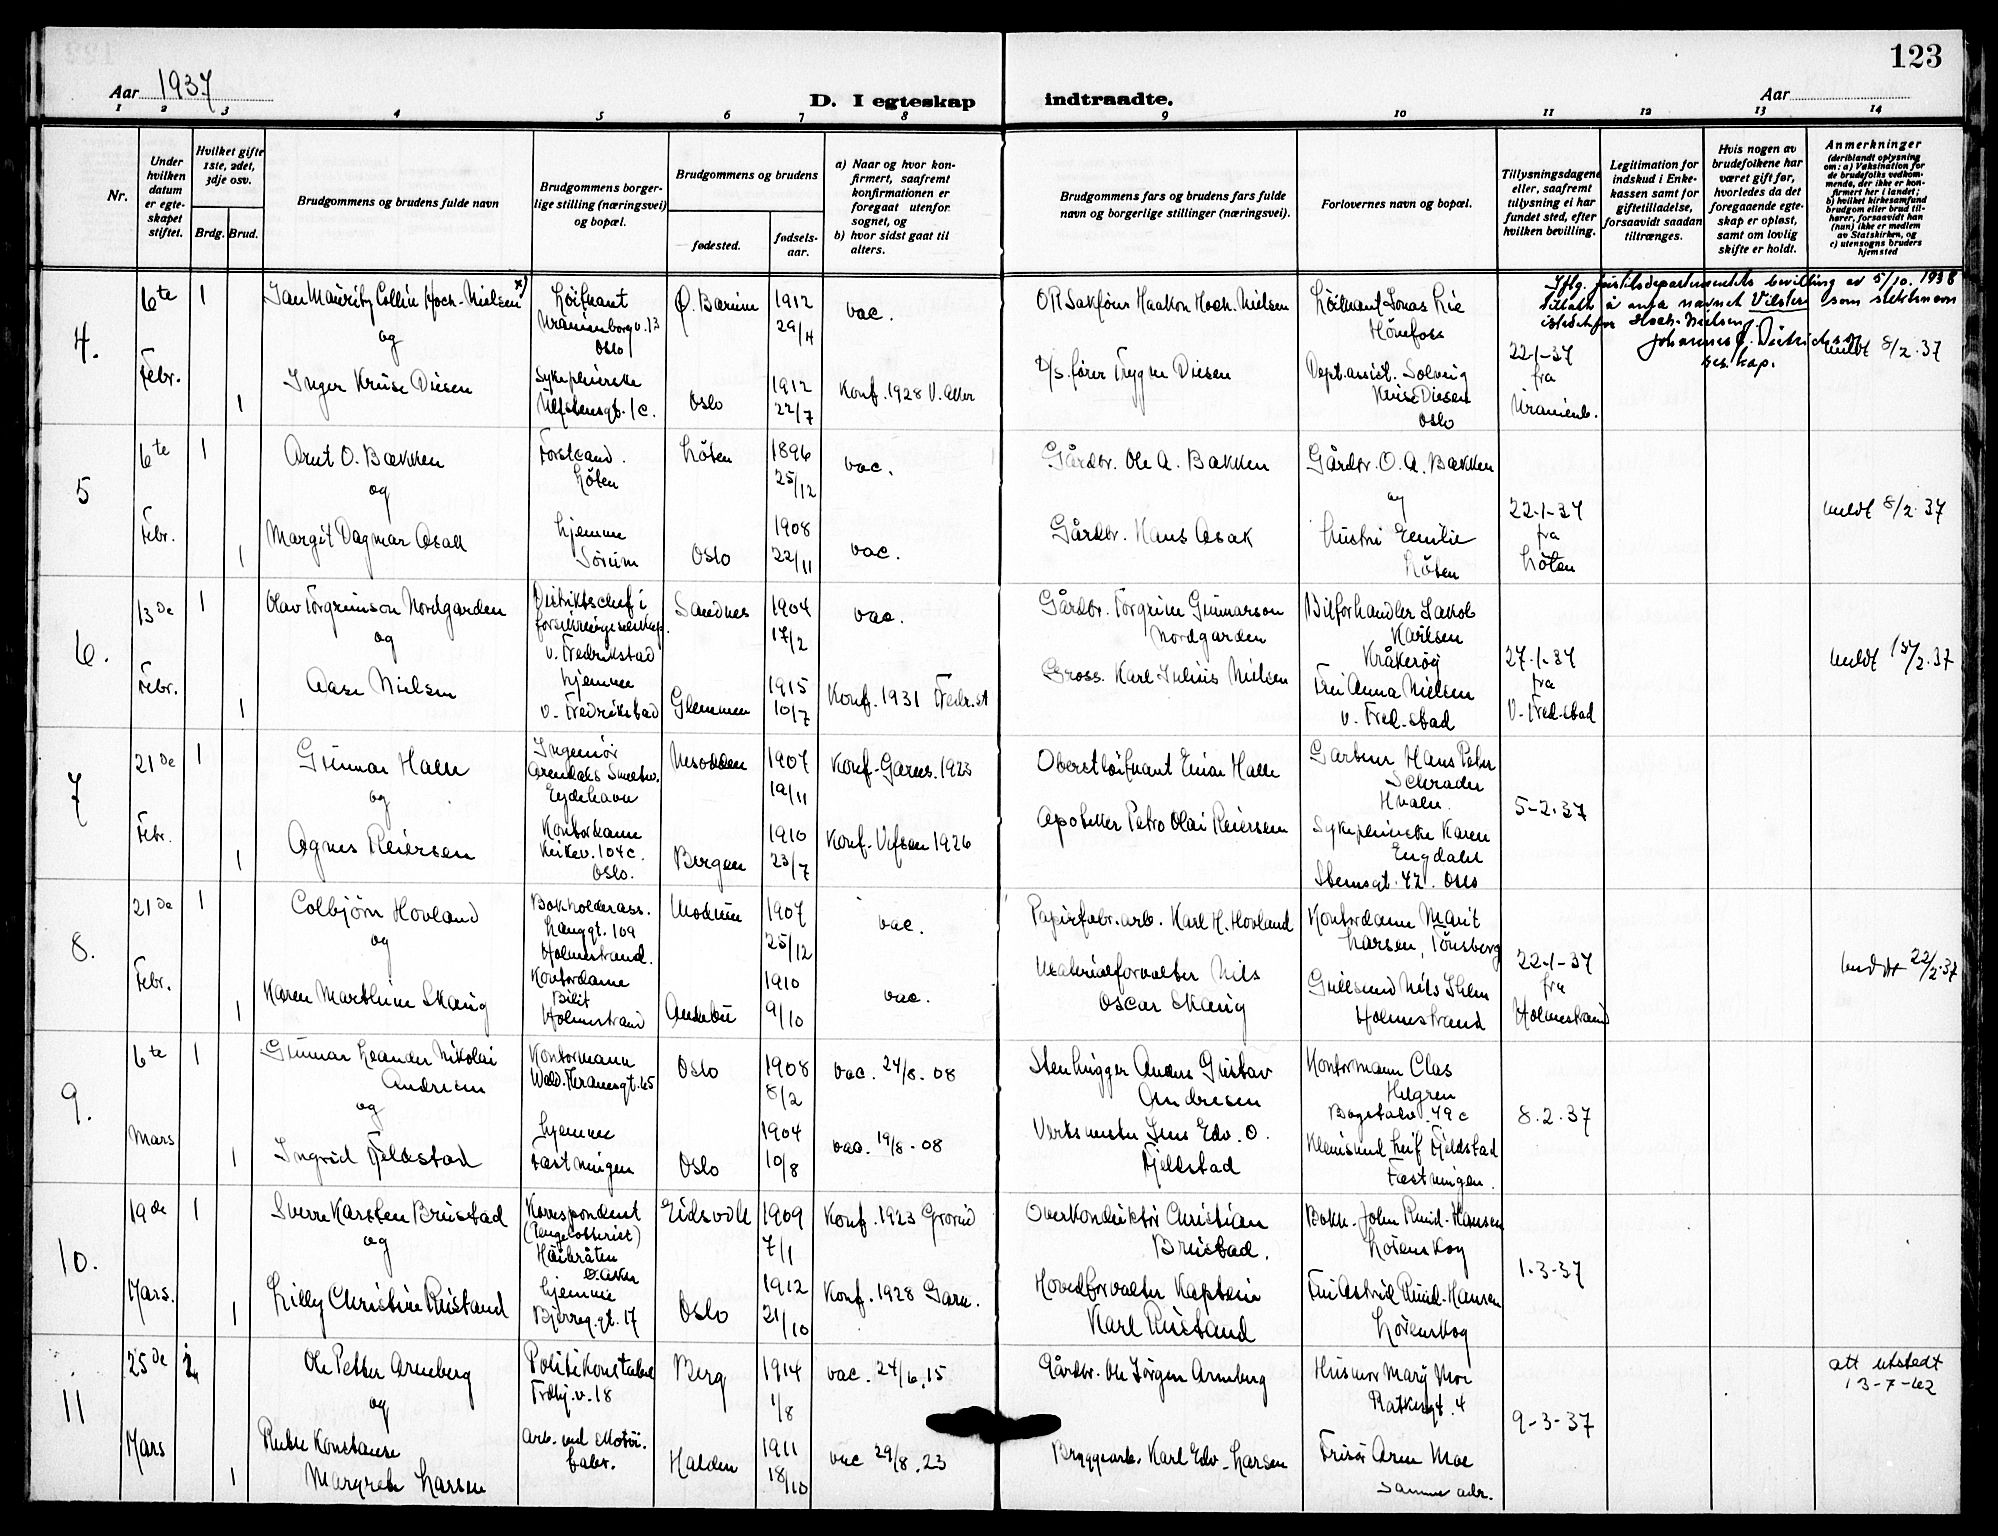 123
Aar 1937
D. I egteskap indtraadte.
Aar
1 2 3 4 5 6 7 8 9 10 11 12 13 14
Nr.
Under hvilken datum er egte-skapet stiftet.
Hvilket gifte 1ste, 2det, 3dje osv.
Brdg. Brud.
Brudgommens og brudens fulde navn
Brudgommens borger-lige stilling (næringsvei) og bopæl.
Brudgommens og brudens
fødested.
fødsels-aar.
a) Naar og hvor kon-firmert, saafremt konfirmationen er foregaat utenfor sognet, og
b) hvor sidst gaat til alters.
Brudgommens fars og brudens fars fulde navn og borgerlige stillinger (næringsvei).
Forlovernes navn og bopæl.
Tillysningsdagene eller, saafremt tillysning ei har fundet sted, efter hvilken bevilling.
Legitimation for indskud i Enke-kassen samt for giftetilladelse, forsaavidt saadan tiltrænges.
Hvis nogen av brudefolkene har været gift før, hvorledes da det foregaaende egte-skap er opløst, samt om lovlig skifte er holdt.
Anmerkninger
(deriblandt oplysning om: a) Vaksination for de brudefolks vedkom-mende, der ikke er kon-firmert her i landet; b) hvilket kirkesamfund brudgom eller brud til-hører, forsaavidt han (hun) ikke er medlem av Statskirken, og c) utensogns bruders hjemsted
4.
6te Febr.
1
Jan Mauritz Collin Hoch-Nielsen x)
Löitnant
Uranienborgv. 13
Oslo
Ø. Bærum
1912
29/4
vac.
OR Sakförer Haakon Hoch-Nielsen
Löitnant Jonas Lie
Hönefoss
Iflg. justisdepartementets bevilling av 5/10. 1938
tillatt å anta navnet Vilster som slektsnavn
istedetfor Hoch-Nielsen.
res.kap.
og
1
Inger Kruse Diesen
Sykepleierske
Oslo
1912
22/7
Konf. 1928 V. Aker
D/s. fører Trygve Diesen
Dept.assist. Solveig
Kruse Diesen
Oslo
22-1-37
fra
Uranienb.
meldt 8/2.37
5
6te Febr.
1
Arnt O. Bækken
Forstcand.
Löten
Löten
1896
25/12
vac.
Gårdbr. Ole A. Bækken
Gårdbr. O. A. Bækken
og
og
1
Margit Dagmar Asak
hjemme
Sörum
Oslo
1908
22/11
vac.
Gårdbr. Hans Asak
Hustru Emilie
Löten
22-1-37
fra
Löten
meldt 8/2.37
6.
13de Febr.
1
Olav Torgrimson Nordgarden
Distriktschef i
forsikringsselskap.
v. Fredrikstad
Sandnes
1904
17/2
vac.
Gårdbr. Torgrim Gunnarson
Nordgarden
Bilforhandler Jakob
Karlsen
Kråkeröy
og
1
Aase Nielsen
hjemme
v. Fredrikstad
Glemmen
1915
10/7
Konf. 1931 Fredr.st
Gross. Karl Julius Nielsen
Fru Anna Nielsen
v. Fred.stad
27-1-37
fra
V. Fred.stad
meldt 15/2.37
7
21de Febr.
1
Gunnar Halle
Ingeniör
Arendals Smeltev.
Eydehavn
Nesodden
1907
19/11
Konf. Garns. 1923
Oberstlöitnant Einar Halle
Gartner Hans Peter
Schrader
Hvaler.
og
1
Agnes Reiersen
Kontordame
Kirkev. 104c.
Oslo.
Bergen
1910
23/7
Konf. Vefsen 1926
Apoteker Petro Olai Reiersen
Sykepleierske Karen
Engdahl
Stensgt. 42. Oslo
5-2-37
8.
21de Febr.
1
Colbjörn Hovland
Bokholderass.
Langgt. 109
Holmestrand.
Modum
1907
25/12
vac.
Papirfabr.arb. Karl H. Hovland
Kontordame Marit
Larsen, Tönsberg
og
1
Karen Marthine Skaug
Kontordame
Bilit
Holmestrand
Andebu
1910
9/10
vac.
Materialforvalter Nils
Oscar Skaug
Gullsmed Nils
Holmestrand
22-1-37
fra
Holmestrand
meldt 22/2.37
9.
6te Mars
1
Gunnar Leander Nikolai
Andresen
Kontormann
Wald. Thranesgt. 65
Oslo
1908
8/2
vac. 24/8-08
Stenhugger Anders Gustav
Andresen
Kontormann Clas
Helgren
Bogstadv. 49c
og
1
Ingrid Fjeldstad
hjemme
Fæstningen
Oslo
1904
10/8
vac. 19/8-08
Verksmester Jens Edv. O.
Fjeldstad
Leif Fjeldstad
Fæstningen.
8.2.37
10.
19de Mars.
1
Sverre Karsten Brustad
Korrespondent
Haibråten
Ö. Aker
Eidsvoll
1909
7/1
Konf. 1923 Grorud
Overkonduktör Christian
Brustad.
Bokh. John Ruud-Hansen
Lörenskog
og
1
Lilly Christine Rustand
hjemme
Bjerreg.gt. 17
Oslo
1912
21/10
Konf. 1928 Garn.
Hovedforvalter Kaptein
Karl Rustand
Fru Astrid Ruud-Hansen
Lörenskog
1-3-37
11
25de Mars
2
Ole Petter Arneberg
Politikonstabel
Trolig.v. 18
Berg
1914
1/8
vac. 24/6.15
Gårdbr. Ole Jörgen Arneberg
Husmor Mary Moe
Ratkesgt. 4
og
1
Ruth Konstanse
Margrethe Larsen
Arb. ved Motor.
fabr.
Halden
1911
18/10
vac 29/8.23
Bryggearb. Karl Edv. Larsen
Frisör Arne Moe
samme adr.
9-3-37
att utstedt
13-7-42